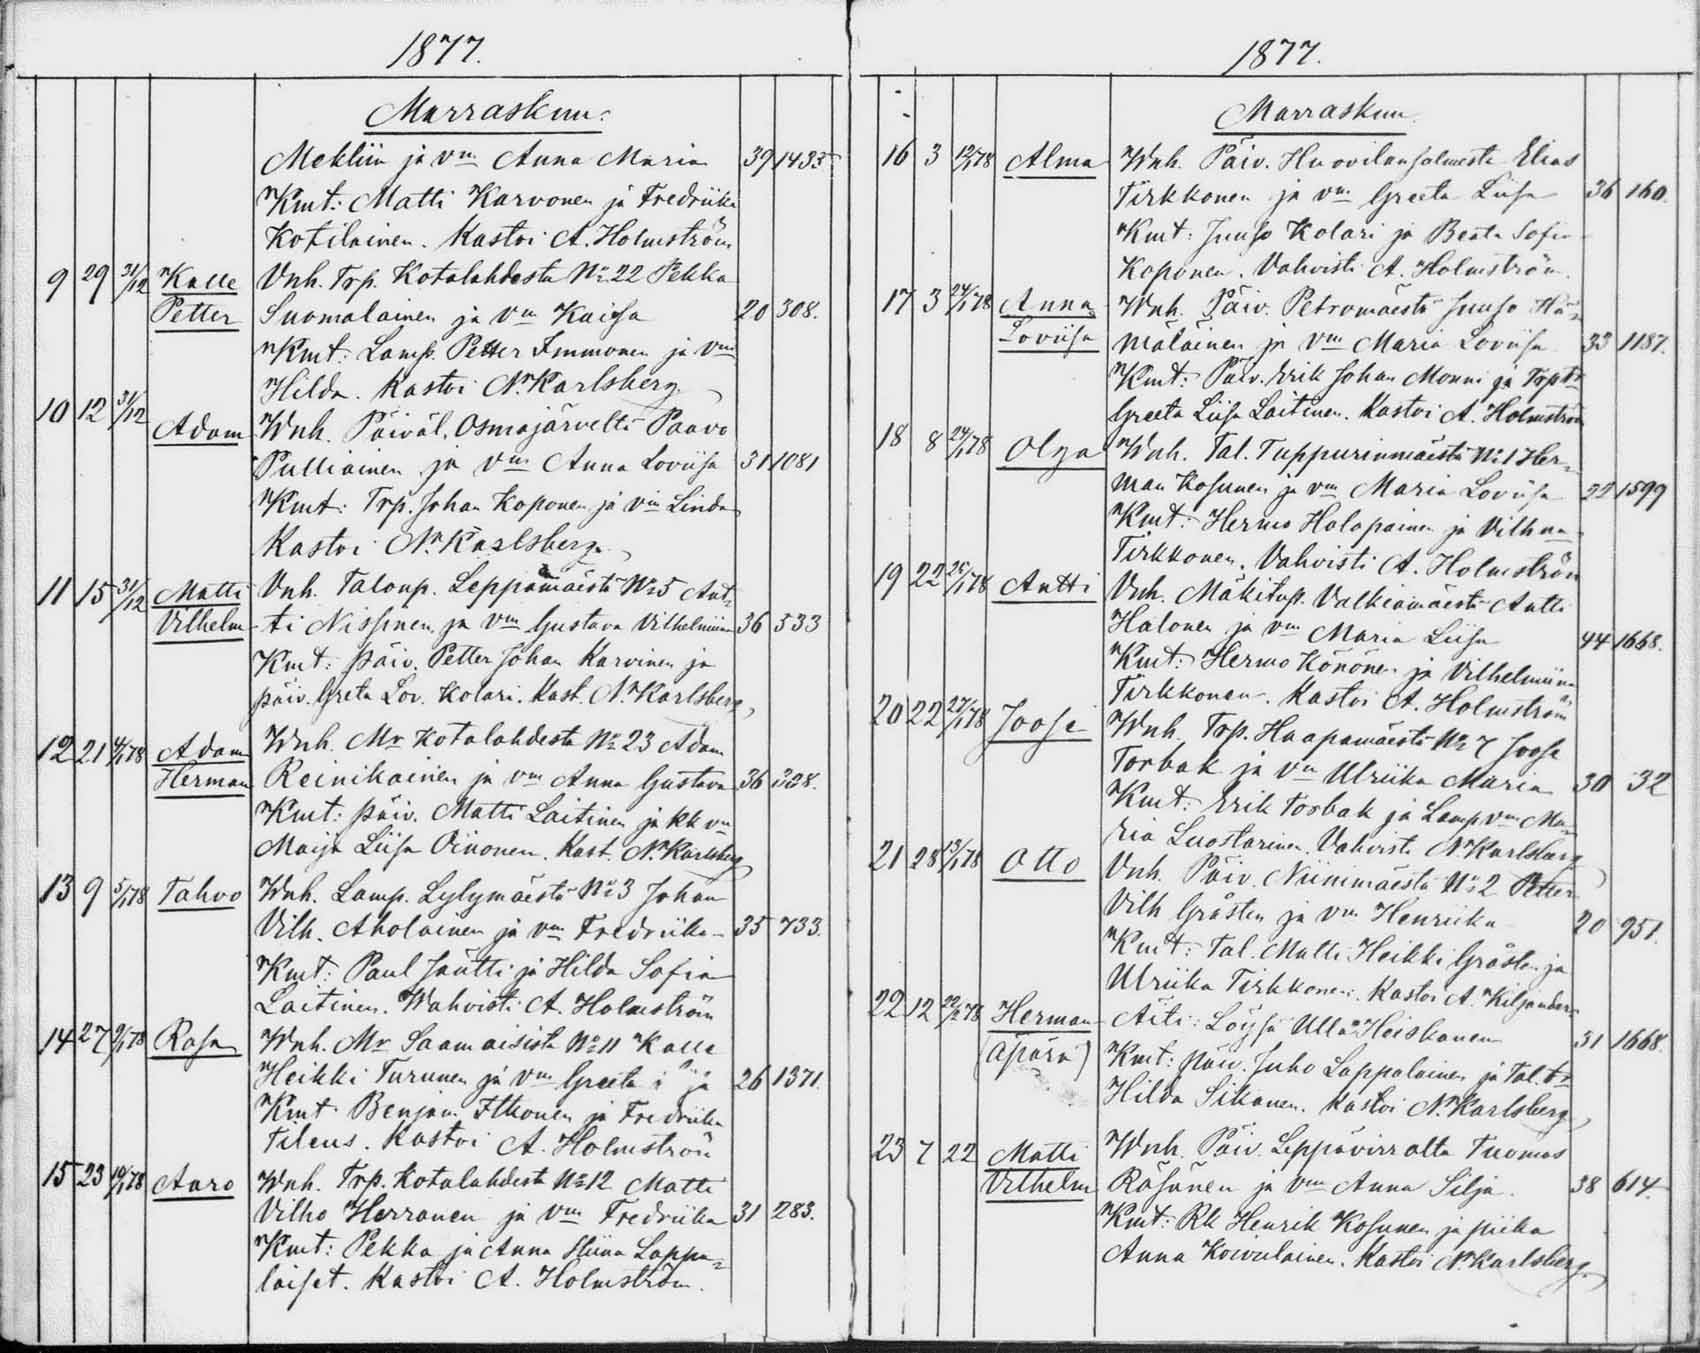 1877.
Marraskuu.
Meklin ja vm Anna Maria 39 1435
Kmt: Matti Karvonen ja Fredriika
Kotilainen. Kastoi A. Holmström
9 29 31/12 Kalle Vnh. Trp. Kotalahdesta No 22 Pekka
Petter Suomalainen ja vm Kaisa 20 308.
Kmt: Lamp. Petter Immonen ja vm
Hilda. Kastoi N. Karlsberg
10 12 31/12 Adam Wnh. Päiväl. Osmajärveltä Paavo
Pulliainen ja vm Anna Loviisa 31 1081
Kmt: Trp. Johan Koponen ja vm Linda
Kastoi N. Karlsberg
11 15 31/12 Matti Vnh. Talonp. Leppämäestä No 5 Ant-
Vilhelm ti Nissinen ja vm Gustava Vilhelmiina 36 533
Kmt: päiv. Petter Johan Karvinen ja
päiv. Greta Lov. Kolari. Kast. N. Karlsberg
12 21 4/1 78 Adam Wnh. Mr Kotalahdesta No 23 Adam
Herman Reinikainen ja vm Anna Gustava 36 328.
Kmt: päiv. Matti Laitinen ja kk vm
Maija Liisa Oinonen. Kast. N. Karlsberg
13 9 5/1 78 Tahvo Wnh. Lamp. Lylymäestä No 3 Johan
Vilh. Aholainen ja vm Fredriika 35 733.
Kmt: Paul Jäntti ja Hilda Sofia
Laitinen. Wahvisti A. Holmström
14 27 9/1 78 Rosa Wnh. Mr Saamaisista No 11 Kalle
Heikki Turunen ja vm Greeta 26 1371.
Kmt Benjam. Itkonen ja Fredriika
Tileus. Kastoi A. Holmström
15 23 19/1 78 Aaro Wnh. Trp. Kotalahdesta No 12 Matti
Vilho Herranen ja vm Fredriika 31 283.
Kmt: Pekka ja Anna Stiina Lappa-
laiset. Kastoi A. Holmström.
1877.
Marraskuu.
16 3 12/1 78 Alma Wnh. Päiv. Huovilansalmesta Elias
Tirkkonen ja vm Greeta Liisa 36 160.
Kmt: Juuso Kolari ja Beata Sofia
Koponen. Vahvisti A. Holmström.
17 3 24/1 78 Anna Wnh. Päiv. Petromäestä Juuso Hä-
Loviisa mäläinen ja vm Maria Loviisa 33 1187.
Kmt: Päiv. Erik Johan Monni ja Trp tr
Greeta Liisa Laitinen. Kastoi A. Holmström
18 8 24/1 78 Olga Wnh. Tal. Tuppurinmäestä No 1 Her-
man Kosunen ja vm Maria Loviisa 22 1599
Kmt: Hermo Holopainen ja Vilhma
Tirkkonen. Vahvisti A. Holmström
19 22 26/1 78 Antti Vnh. Mäkitup. Valkiamäestä Antti
Halonen ja vm Maria Liisa 44 1668.
Kmt: Hermo Könönen ja Vilhelmiina
Tirkkonen. Kastoi A. Holmström
20 22 27/1 78 Joose Wnh. Trp. Haapamäestä No 7 Joose
Torbak ja vm Ulriika Maria 30 32
Kmt: Erik Torbak ja Lamp vm Ma-
ria Luostarinen. Vahvisti N. Karlsberg
21 28 13/1 78 Otto Vnh. Päiv. Niinimäestä No 2 Petter
Vilh Gråsten ja vm Henriika 20 951.
Kmt: Tal. Matti Heikki Gråsten ja
Ulriika Tirkkonen. Kastoi A. Kiljander
22 12 22/2 78 Herman Äiti: Löysä Ulla Heiskanen 31 1668.
(äpärä) Kmt: päiv. Juho Lappalainen ja tal. tr
Hilda Sikanen. Kastoi N. Karlsberg
23 7 22 Matti Wnh. Päiv. Leppävirralta Tuomas
Vilhelm Räsänen ja vm Anna Silja. 38 614.
Kmt: Rk Henrik Kosunen ja piika
Anna Koivulainen. Kastoi N. Karlsberg